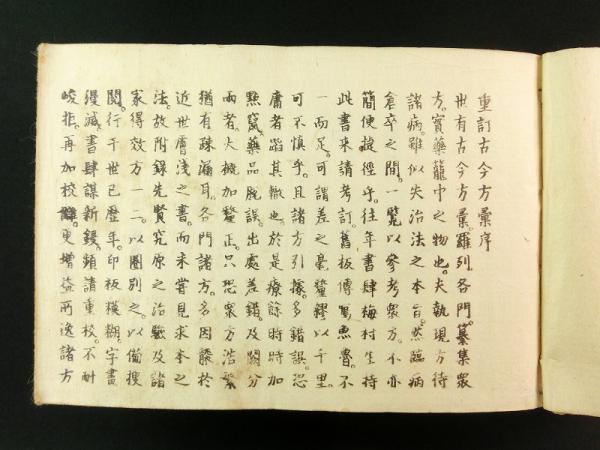 重訂古今方彙序
世有古今方彙。羅列各門。纂集衆
方。實藥籠中之物也。夫執現方待
諸病。雖似失治法之本旨。然臨病
倉卒之間。一覧以參考衆方。不亦
簡便捷徑乎。往年書肆梅村生持
此書来請考訂。舊板傳寫魚魯。不
一而足。可謂差之毫釐。繆以千里。
可不慎乎。且諸方引據。多錯誤。恐
庸者蹈其轍也。於是療餘時時加
㸃竄。藥品脱誤。出處差錯。及闕分
兩者。大概加釐正。只恐衆方浩繁
猶有疎漏耳。各門諸方。多因謄於
近世膚淺之書。而未嘗見求本之
法。故附錄先賢究原之治驗及諸
家得效方一二。以圈別之。以備搜
閲。行于世已歴年。印板模糊。字畫
漫滅。書肆謀新鋟。頻請重校。不耐
峻拒。再加校讎。更増益所逸諸方